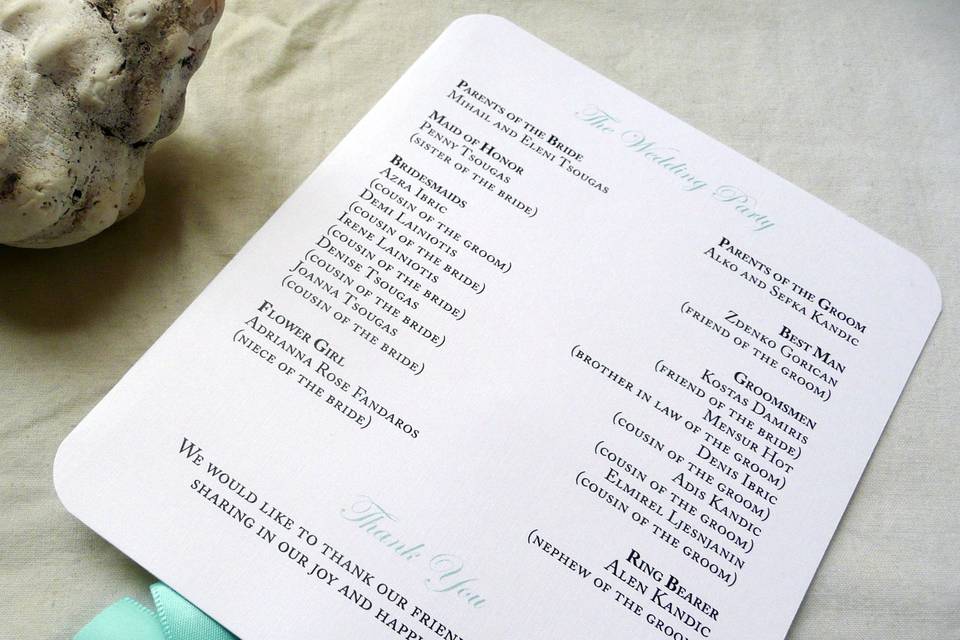 The Wedding Party
Parents of the Bride
Mihail and Eleni Tsougas
Maid of Honor
Penny Tsougas
(sister of the bride)
Bridesmaids
Azra Ibric
(cousin of the groom)
Demi Lainiotis
(cousin of the bride)
Irene Lainiotis
(cousin of the bride)
Denise Tsougas
(cousin of the bride)
Joanna Tsougas
(cousin of the bride)
Flower Girl
Adrianna Rose Fandaros
(niece of the bride)
Parents of the Groom
Alko and Sefka Kandic
Best Man
Zdenko Gorican
(friend of the groom)
Groomsmen
Kostas Damiris
(friend of the bride)
Mensur Hot
(brother in law of the groom)
Denis Ibric
(cousin of the groom)
Adis Kandic
(cousin of the groom)
Elmirel Ljesnjanin
(cousin of the groom)
Ring Bearer
Alen Kandic
(nephew of the groom)
Thank You
We would like to thank our
sharing in our joy and